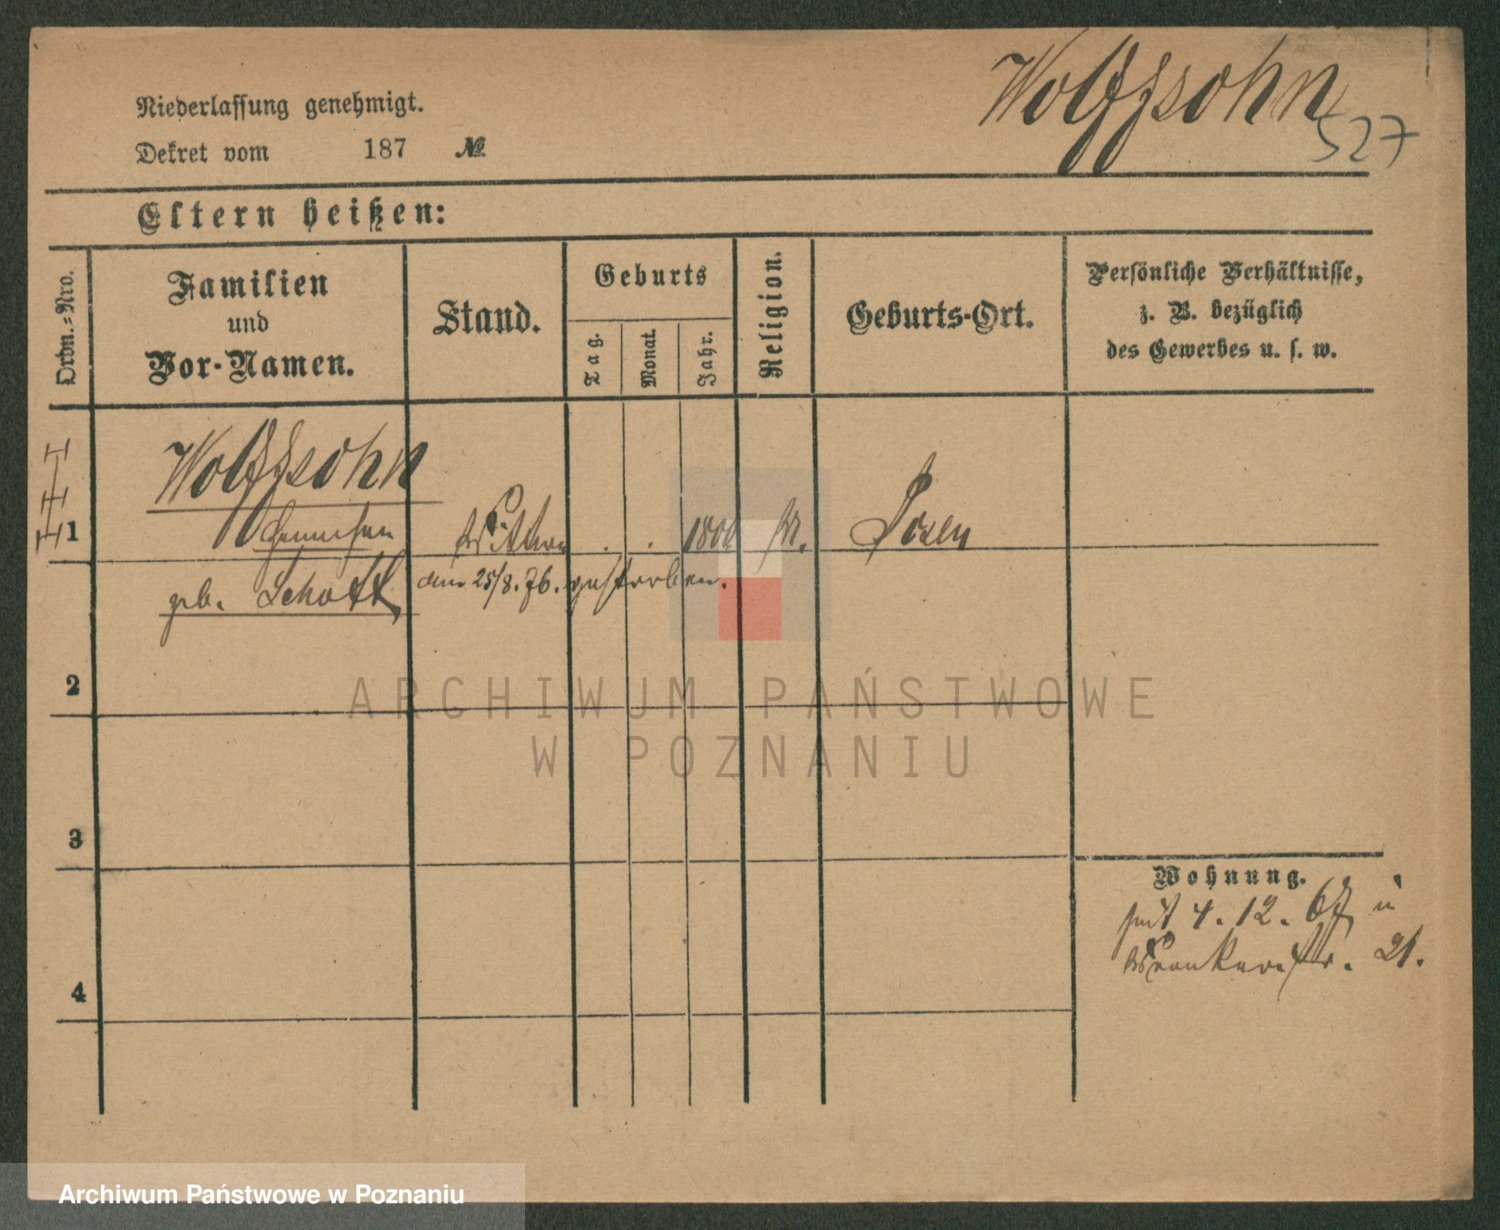 Wolffsohn
527
Niederlassung genehmigt.
Dekret vom 187 №
Eltern heißen:
Ordn.=Nro.
Familien
und
Vor-Namen.
Stand.
Geburts
Tag.
Monat.
Jahr.
Religion.
Geburts-Ort.
Persönliche Verhältnisse,
z. B. bezüglich
des Gewerbes u. s. w.
Wolffsohn
1 Wittwe . . 1800 Posen
geb. Schott
den 25/8. 76. gestorben.
2
3
4
Wohnung.
seit 4. 12. 67 in
21.
ARCHIWUM PAŃSTWOWE
W POZNANIU
Archiwum Państwowe w Poznaniu